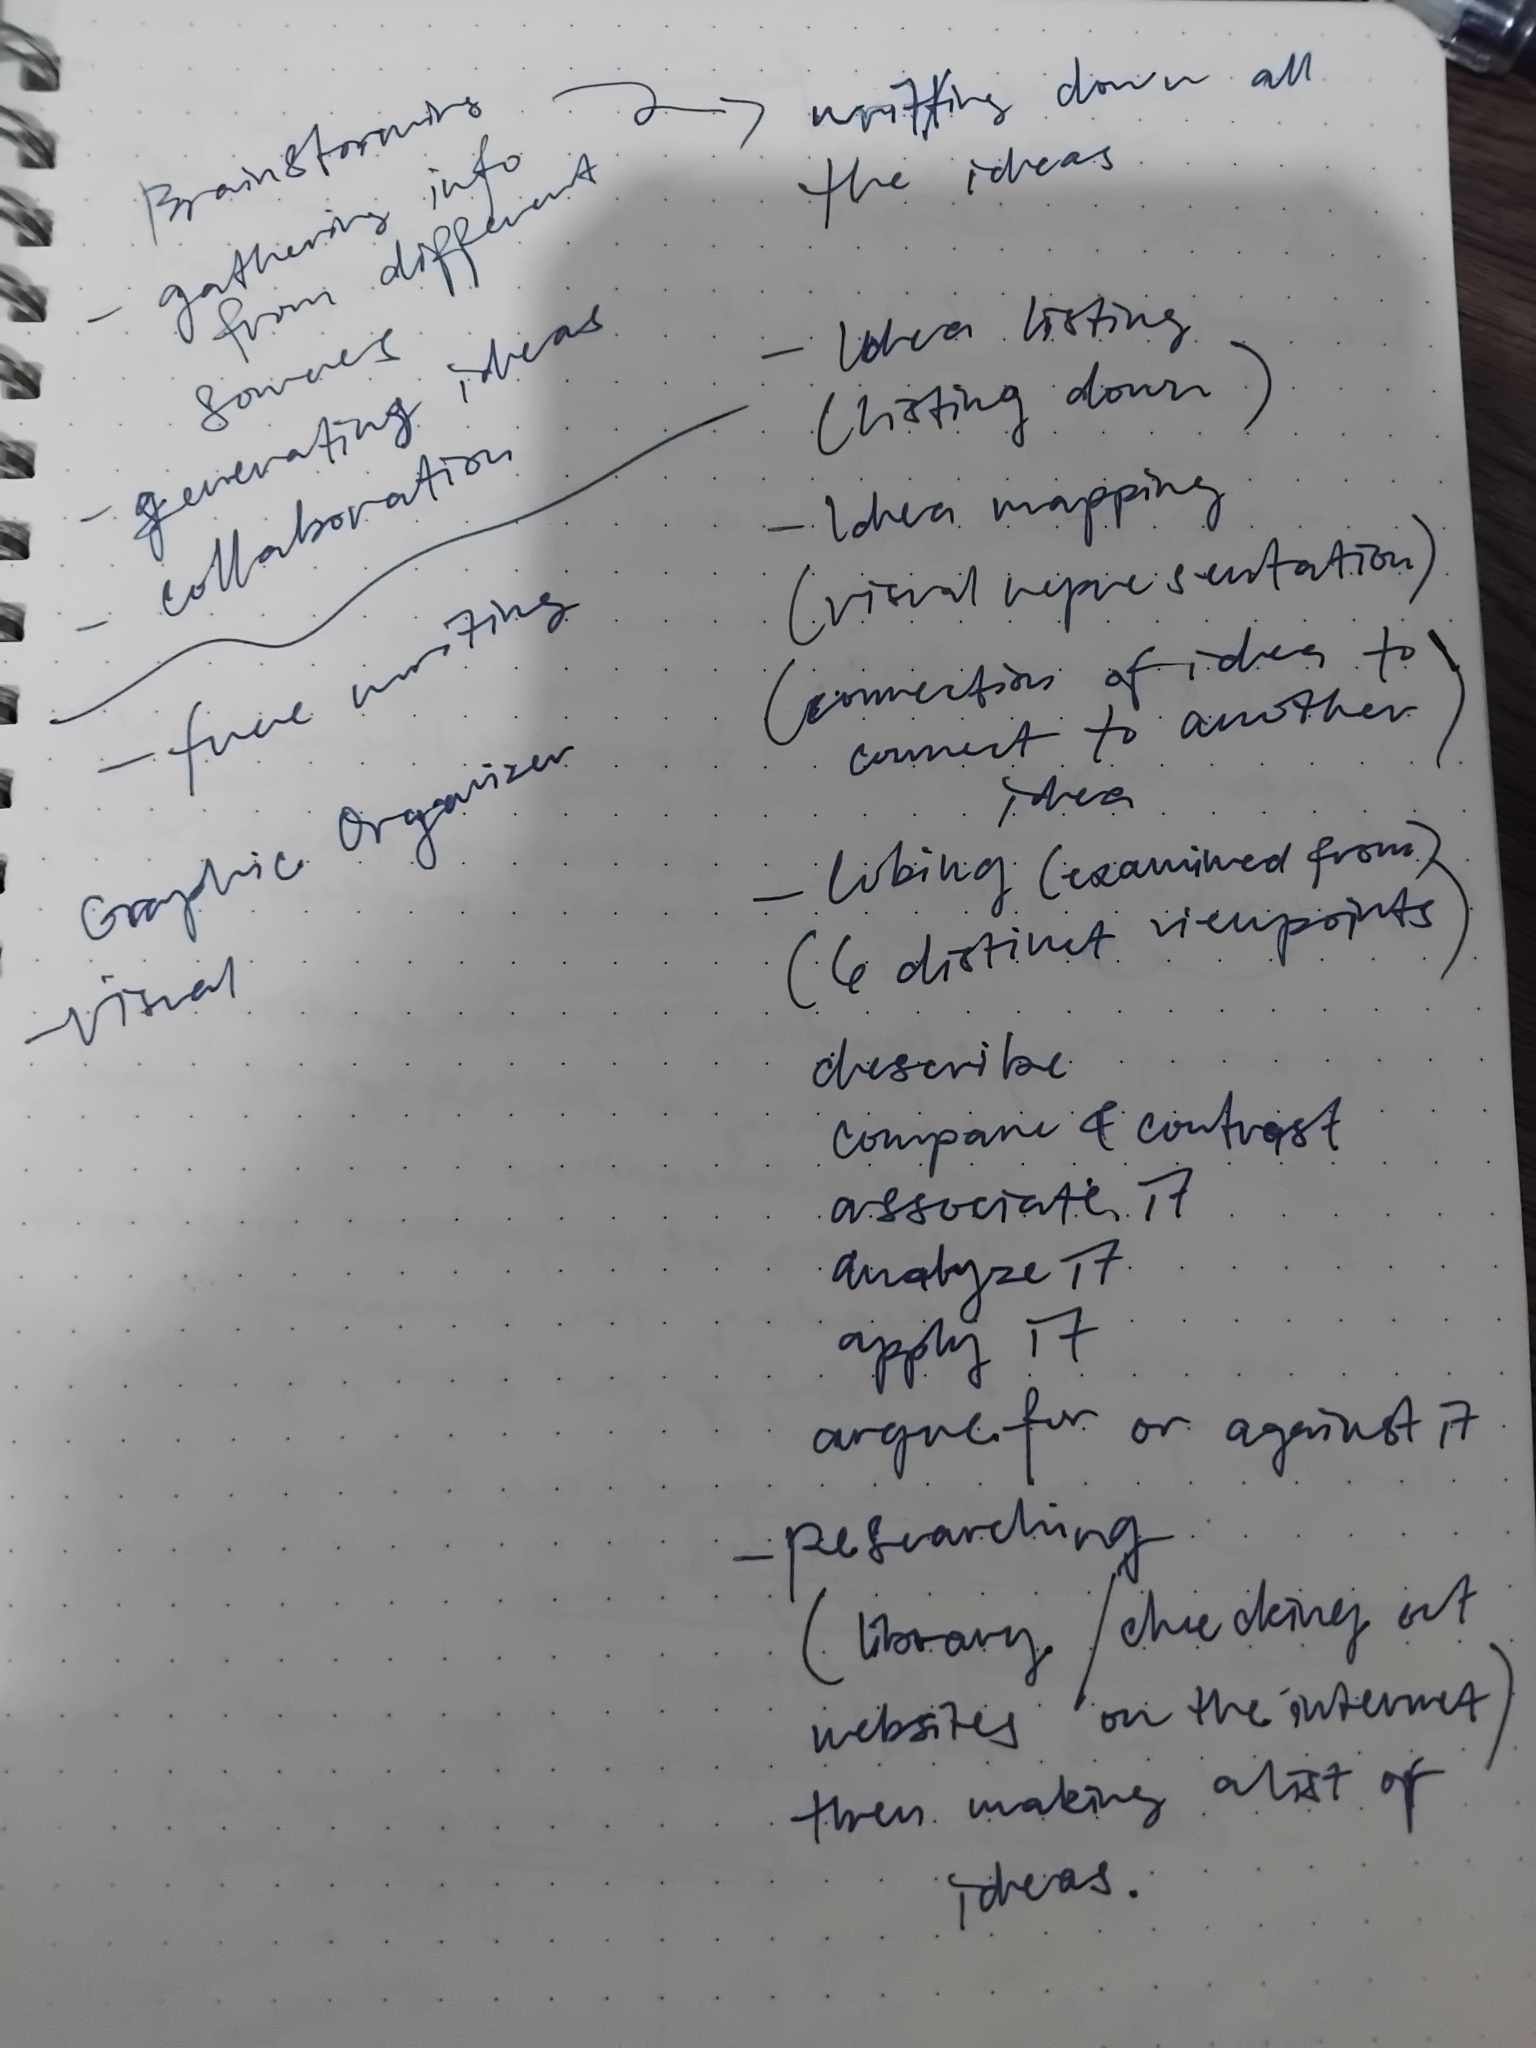 Brainstorming
- gathering info
from different
sources
- generating ideas
- collaboration
- free writing
Graphic Organizer
- visual
writting down all
the ideas
- Idea listing
(listing down)
- Idea mapping
(visual representation)
(connection of idea to
connect to another
idea)
- Cubing (examined from)
(6 distinct viewpoints)
describe
compare & contrast
associate it
analyze it
apply it
argue for or against it
- Researching
(library / checking out
websites on the internet)
then making a list of
ideas.